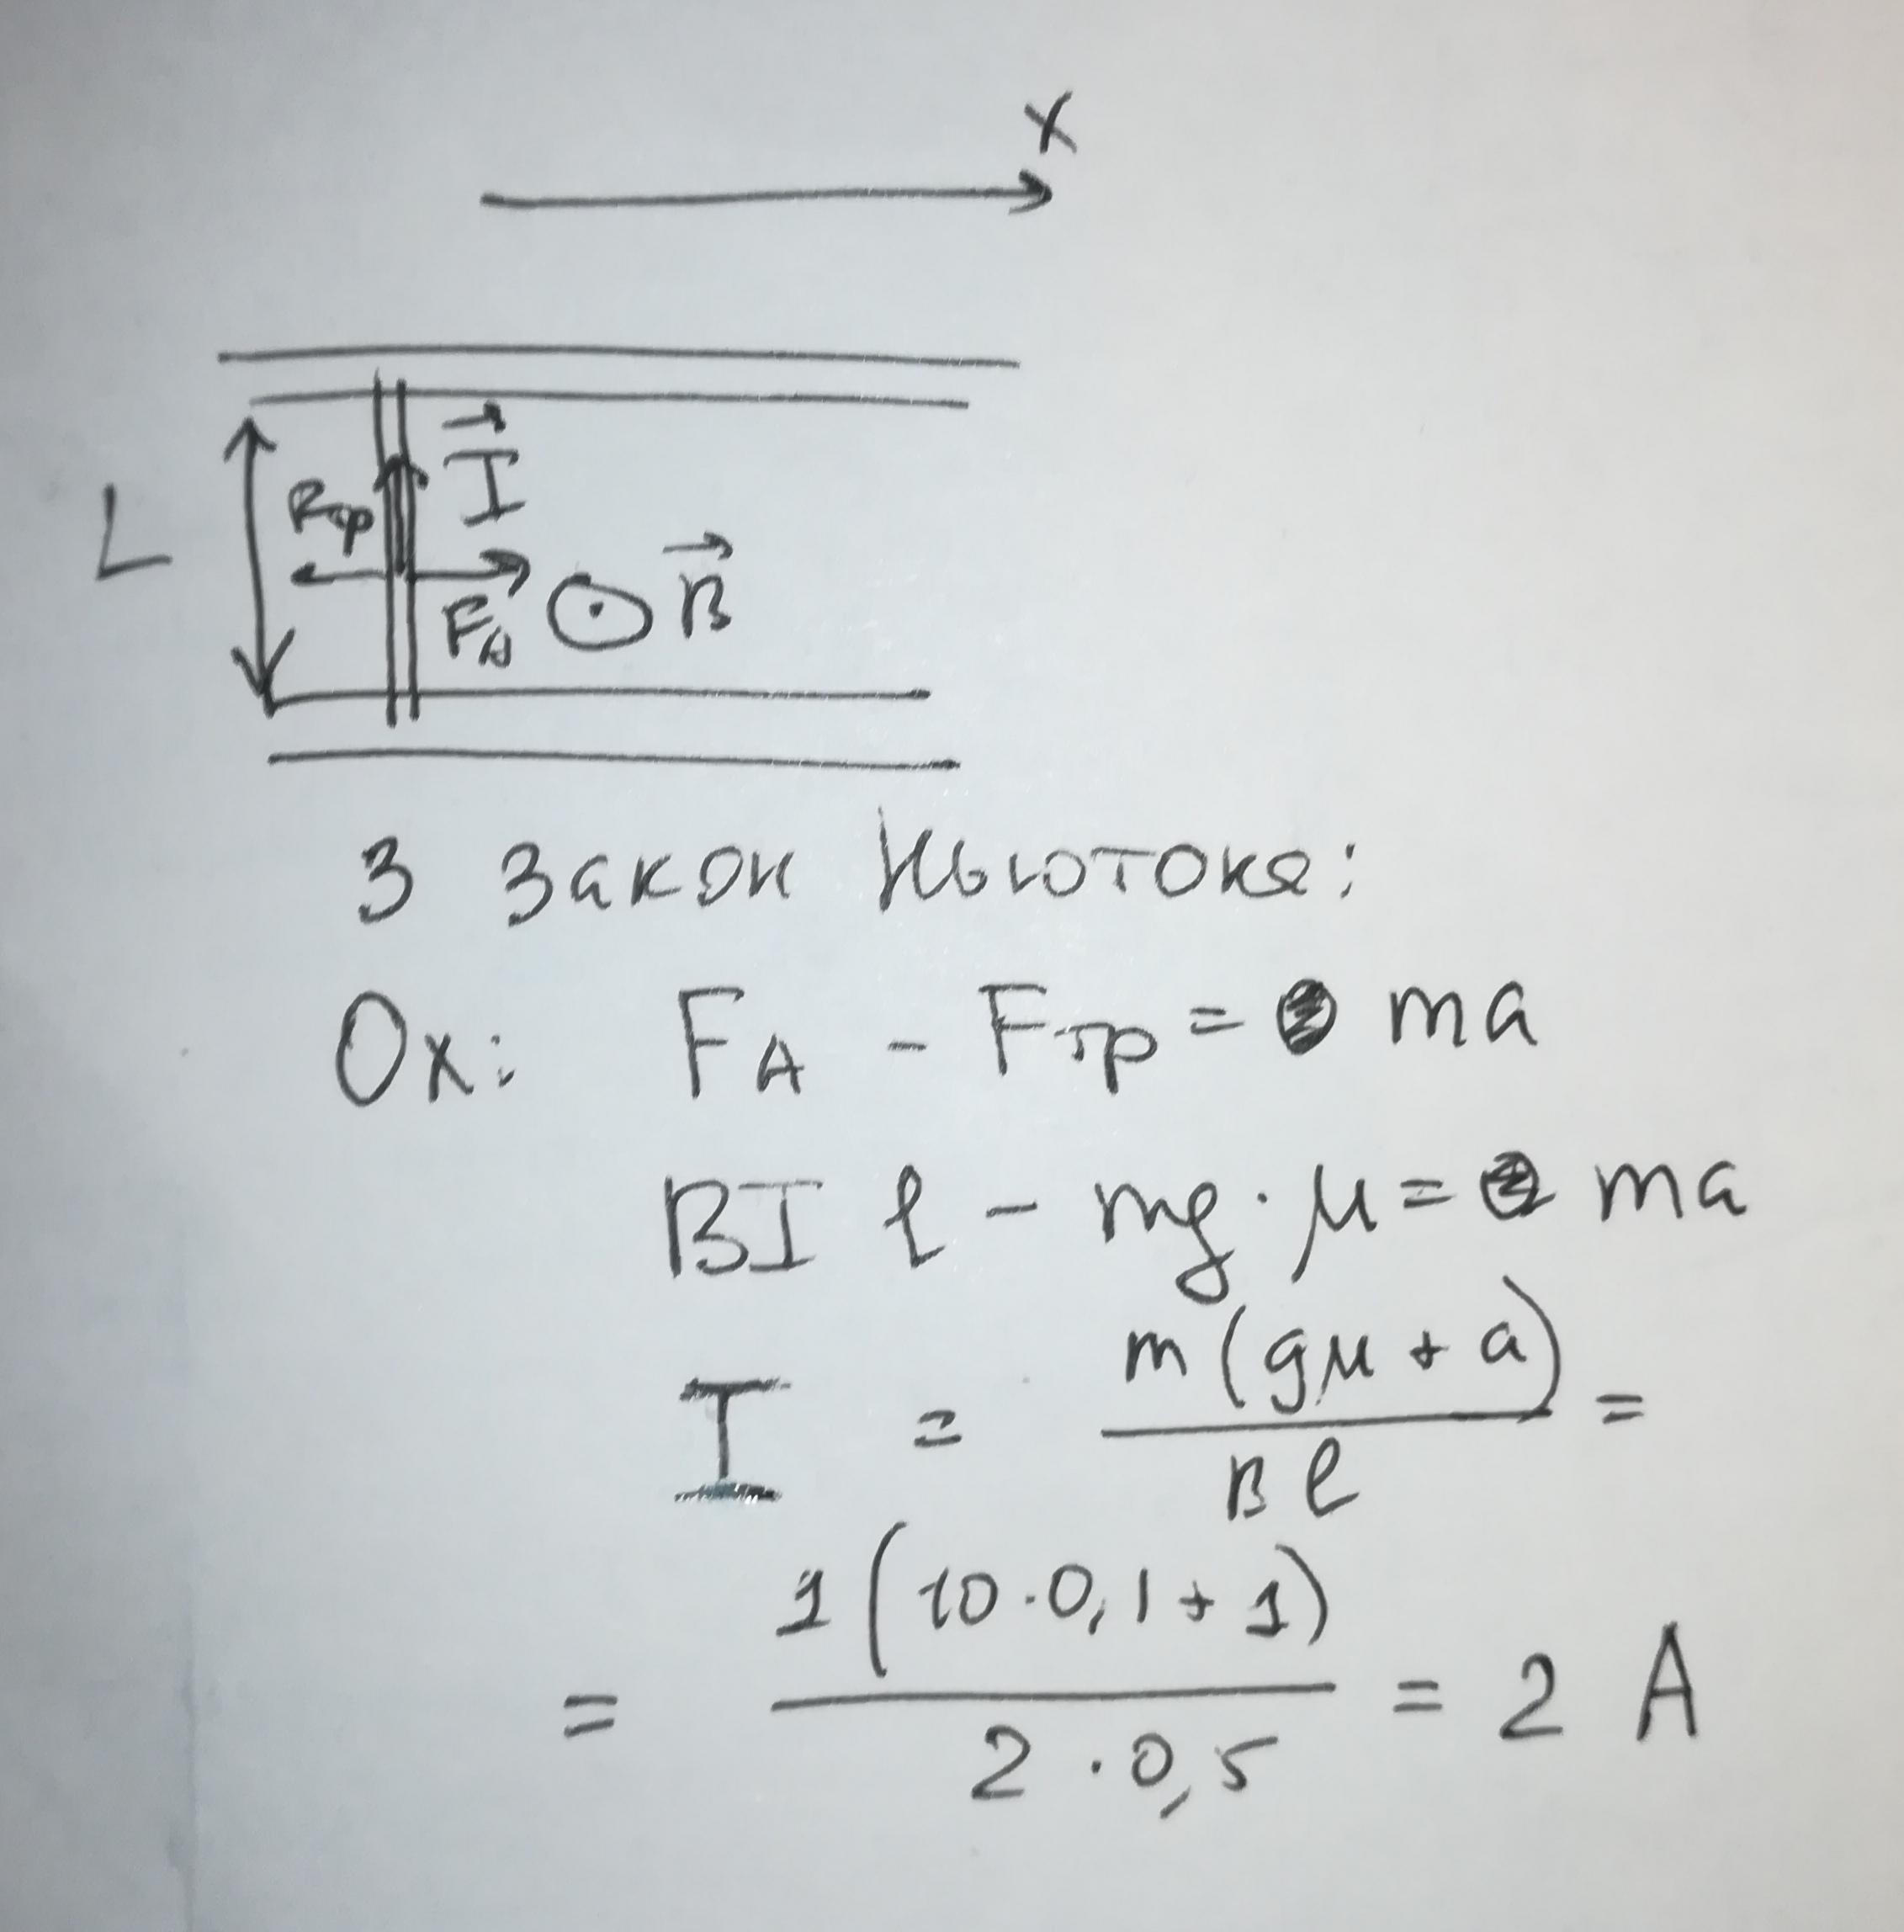 X
L
Fтр
I
FA
B
3 закон Ньютона:
Ox: FA - Fтр = ma
BI l - mg · μ = ma
I = m(gμ + a) / Bl =
= 1(10 · 0,1 + 1) / 2 · 0,5 = 2 A